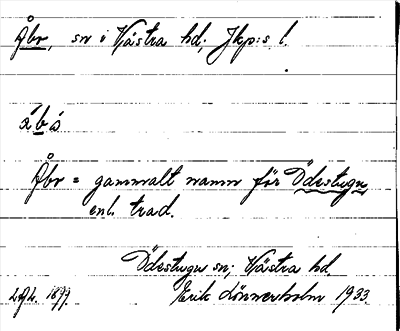 Åbo, sn i Västra hd; Jkp:s l.
ǻbó
Åbo = gammalt namn för Ödestugu
enl. trad.
Ödestugu sn; Västra hd.
1877. Erik Lönnerholm 1933.